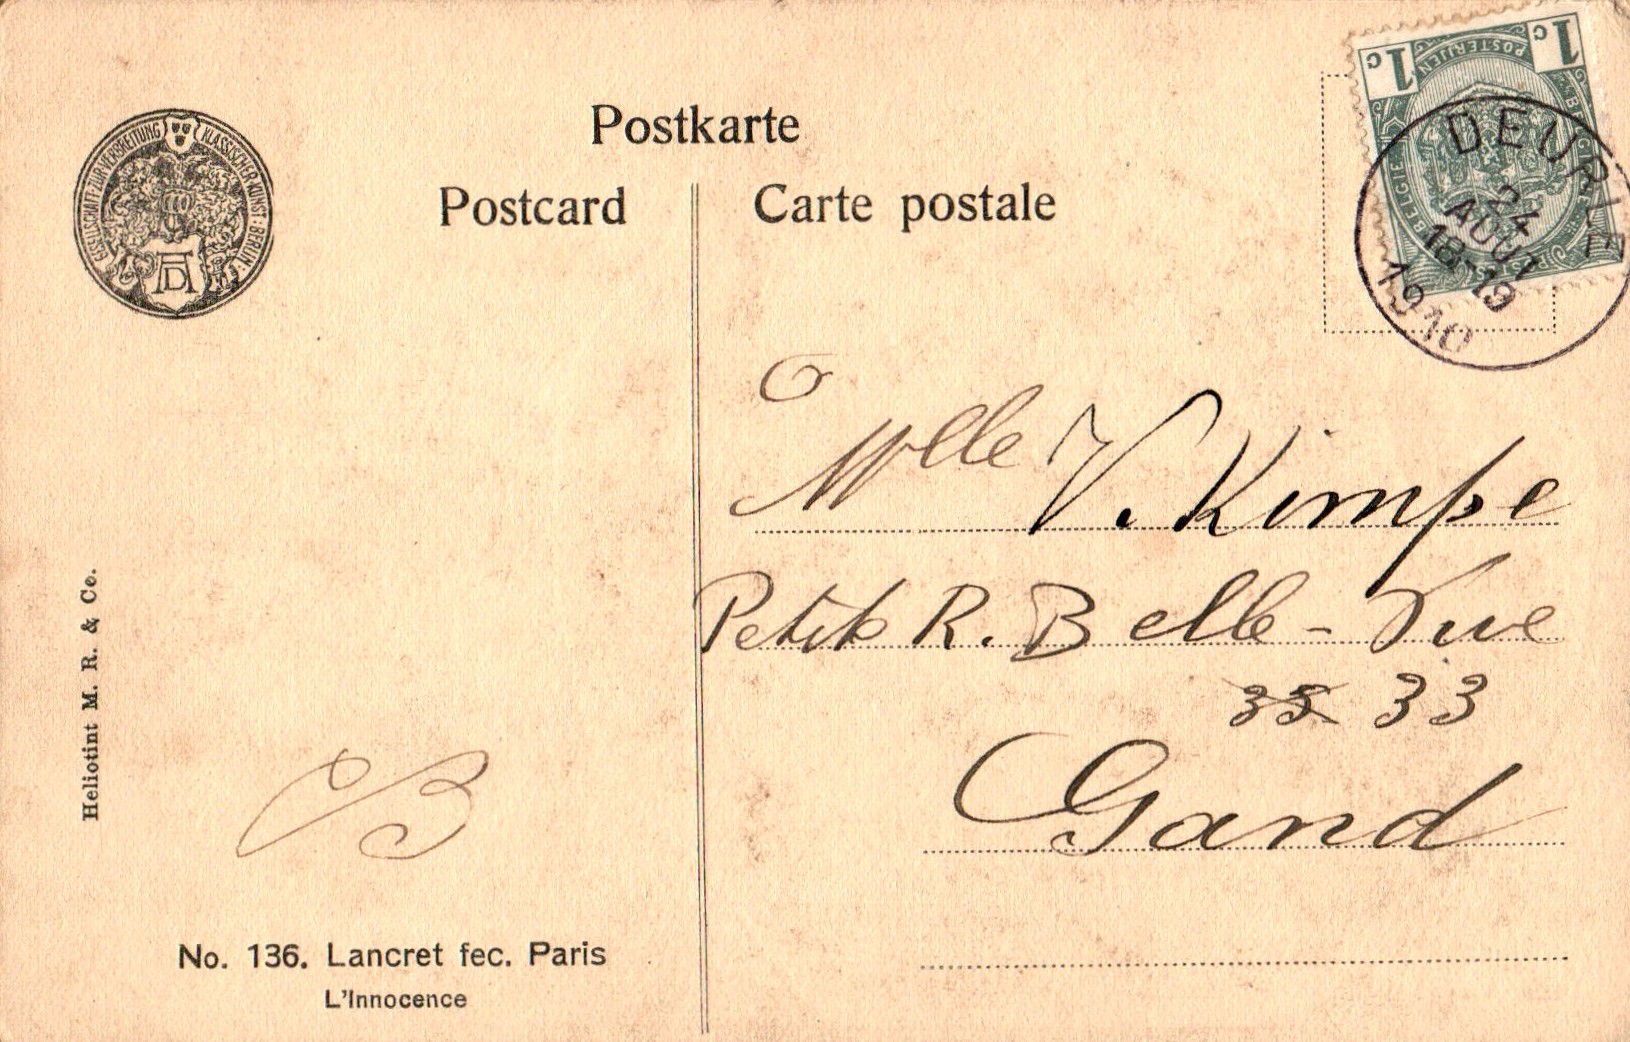 GESELLSCHAFT·ZUR·VERBREITUNG KLASSISCHER·KUNST:BERLIN:
AD
Postkarte
Postcard
Carte postale
1c 1c
POSTERIJEN
BELGIE
DEURLE
24
AOUT
18-19
1910
Mlle V. Kimpe
Petite R. Belle-Vue
35 33
Gand
B
Heliotint M. R. & Co.
No. 136. Lancret fec. Paris
L'Innocence